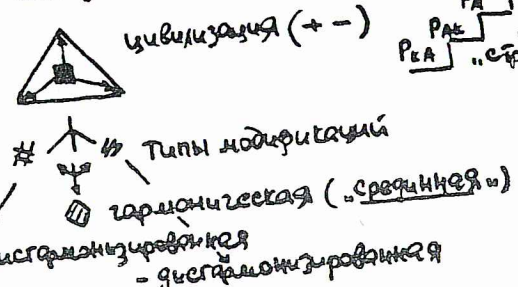 цивилизация (+ -)
РА
РАК
РКА
"стр
# типы модификаций
гармоническая ("срединная")
исгармонизированная
- дисгармонизированная